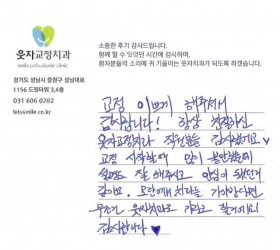 웃자교정치과
smile orthodontic clinic
경기도 성남시 중원구 성남대로
1156 도원타워 3,4층
031 606 0282
letssmile.co.kr
소중한 후기 감사드립니다.
함께 할 수 있었던 시간에 감사하며,
환자분들의 소리에 귀 기울이는 웃자치과가 되도록 하겠습니다.
교정 이쁘게 해주셔서
감사합니다! 항상 친절하신
웃자교정치과 직원분들 감사했어요
교정 시작할때 많이 불안했는데
설명도 잘 해주시고 안심이 됐던거
같아요. 오만때 치과는 가야한다면
무조건 웃자치과로 가라고 할거에요!
감사합니다 ♥